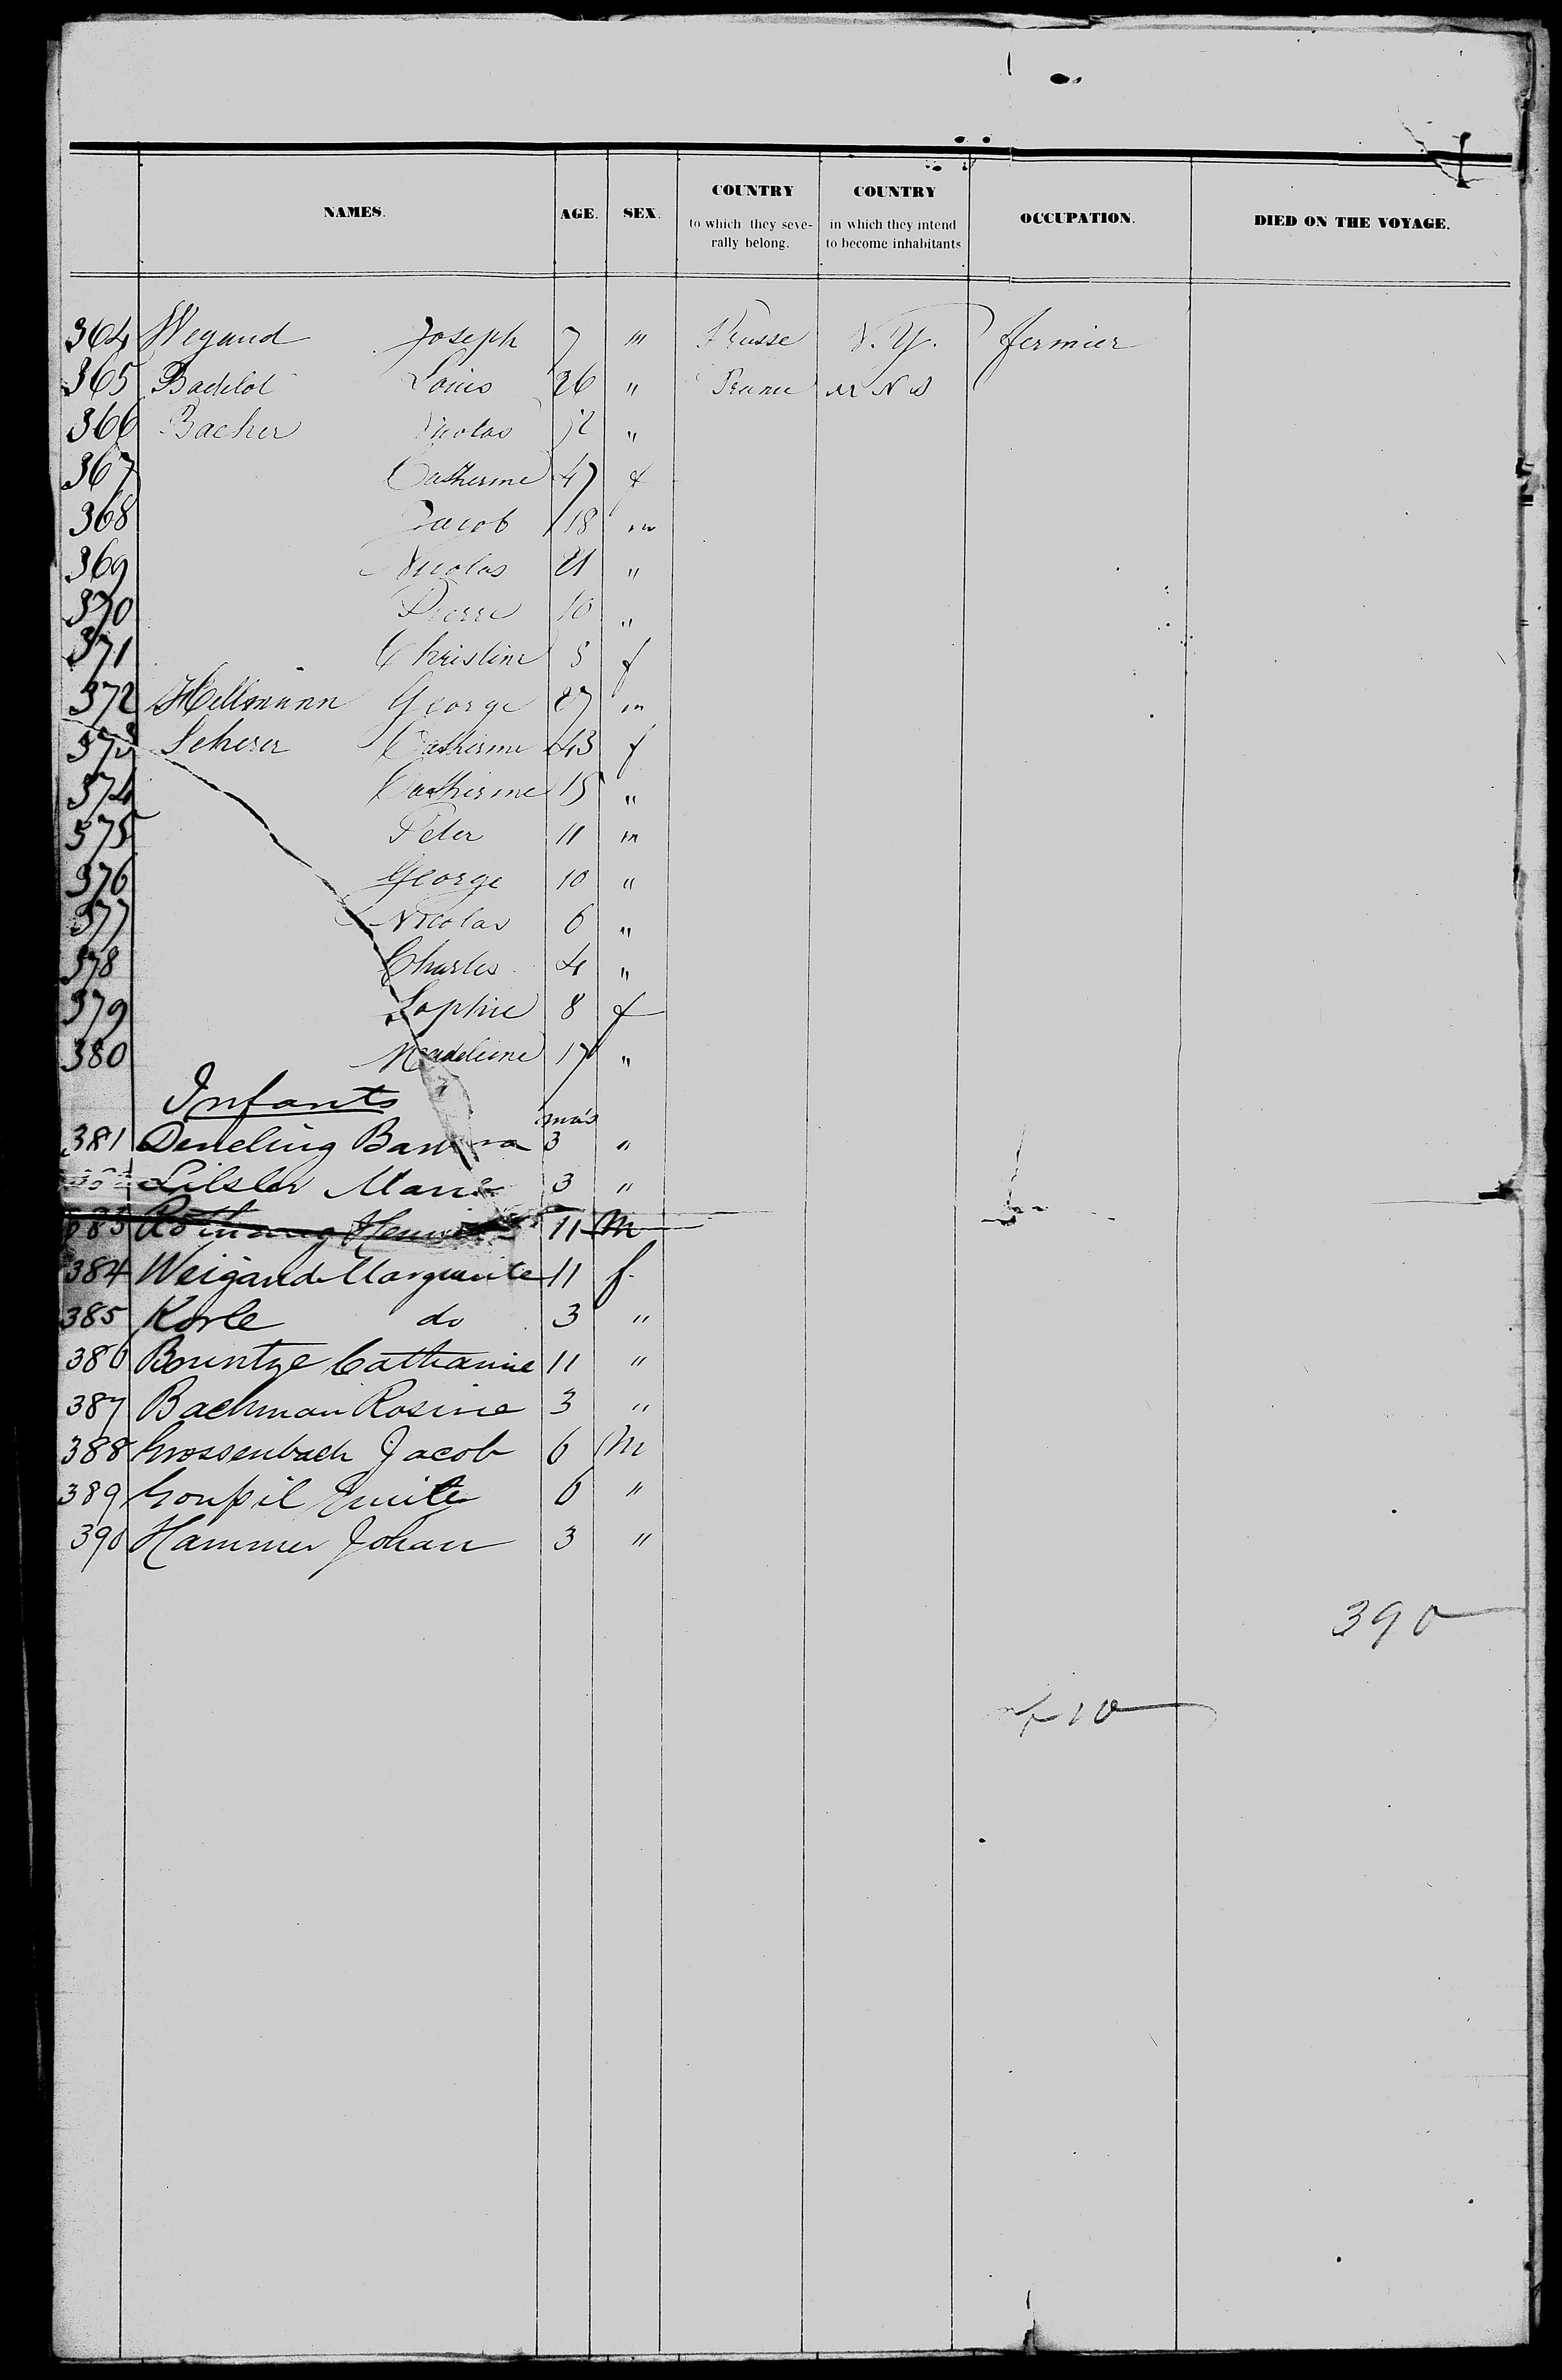 NAMES. AGE. SEX. COUNTRY to which they severally belong. COUNTRY in which they intend to become inhabitants OCCUPATION. DIED ON THE VOYAGE.
364 Wegand Joseph 7 " Prusse N.Y. fermier
365 Badelot Louis 26 "
366 Bacher Nicolas 52 "
367 Catherine 47 f
368 Jacob 18 m
369 Nicolas 21 "
370 Pierre 10 "
371 Christine 8 f
372 Hellmann George 27 m
373 Scherer Catherine 43 f
374 Catherine 15 "
375 Peter 11 m
376 George 10 "
377 Nicolas 6 "
378 Charles 4 "
379 Sophie 8 f
380 Madeleine 17 "
Infants
mos
381 Deneling 3 "
Marie 3 "
383 11 M
384 Weigand Marguerite 11 f.
385 Korle do 3 "
386 Bountze Catharine 11 "
387 Bachman Rosine 3 "
388 Grossenbach Jacob 6 M
389 Goupil Emile 6 "
390 Hammer Johan 3 "
390
10